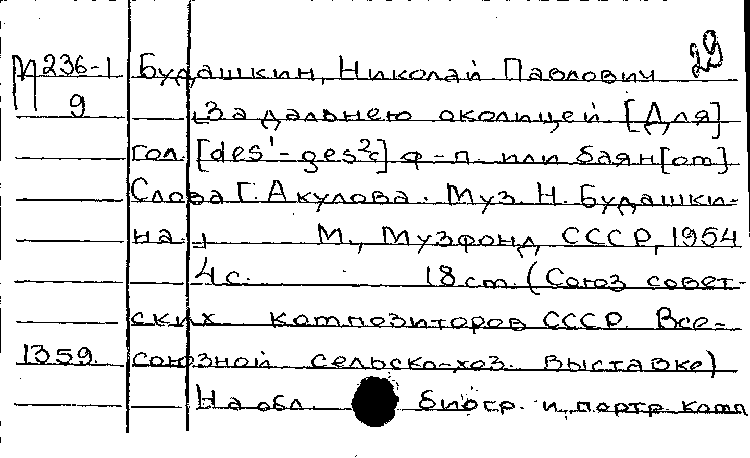 29
М 236-1 Будашкин, Николай Павлович
9 За дальнею околицей [Для]
гол. [des'-ges²] ф-п. или баян[ом]
Слова Г. Акулова. Муз. Н. Будашки-
на. М., Музфонд СССР, 1954
4с. 18 cm. (Союз совет-
ских композиторов СССР. Все-
1359. союзной сельско-хоз. выставке)
На обл. биогр. и портр. комп